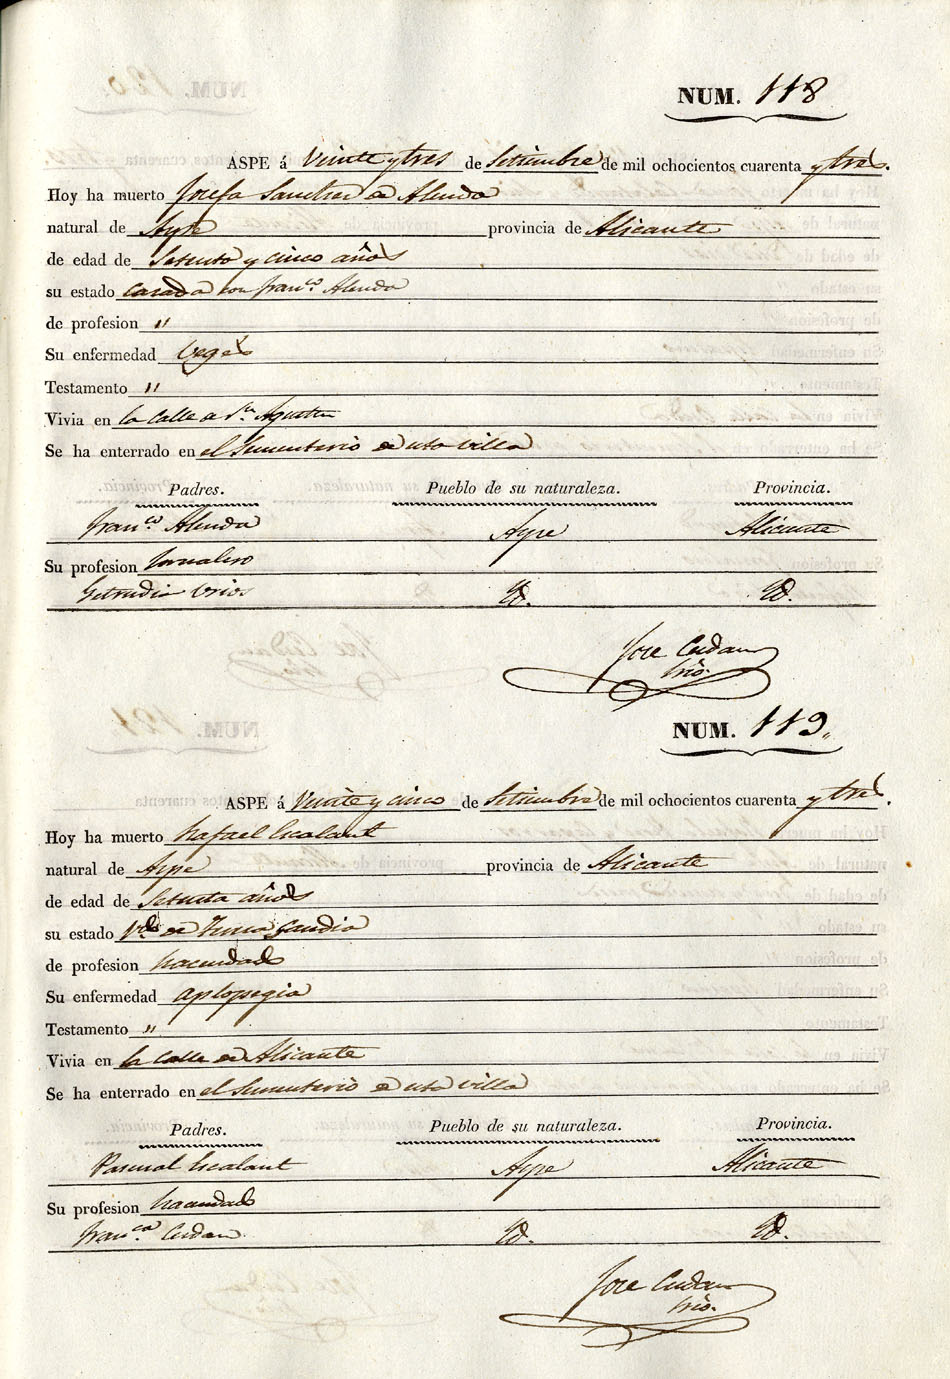 NUM. 118
ASPE á Veinte y tres de Setiembre de mil ochocientos cuarenta y tres.
Hoy ha muerto Josefa Sanchez de Alenda
natural de Aspe provincia de Alicante
de edad de Setenta y cinco años
su estado casada con Fran.co Alenda
de profesion "
Su enfermedad Vegés
Testamento "
Vivia en la Calle de Sn. Agustin
Se ha enterrado en el Sementerio de esta villa
Padres. Pueblo de su naturaleza. Provincia.
Fran.co Alenda Aspe Alicante
Su profesion Jornalero
Getrudis Urios Id. Id.
Jose Cerdan
Srio.
NUM. 119.
ASPE á Veinte y cinco de Setiembre de mil ochocientos cuarenta y tres.
Hoy ha muerto Rafael Escalant
natural de Aspe provincia de Alicante
de edad de Setenta años
su estado Vdo. de Gandia
de profesion hacendado
Su enfermedad aplopegia
Testamento "
Vivia en la Calle de Alicante
Se ha enterrado en el Sementerio de esta villa
Padres. Pueblo de su naturaleza. Provincia.
Pascual Escalant Aspe Alicante
Su profesion hacendado
Fran.ca Cerdan Id. Id.
Jose Cerdan
Srio.